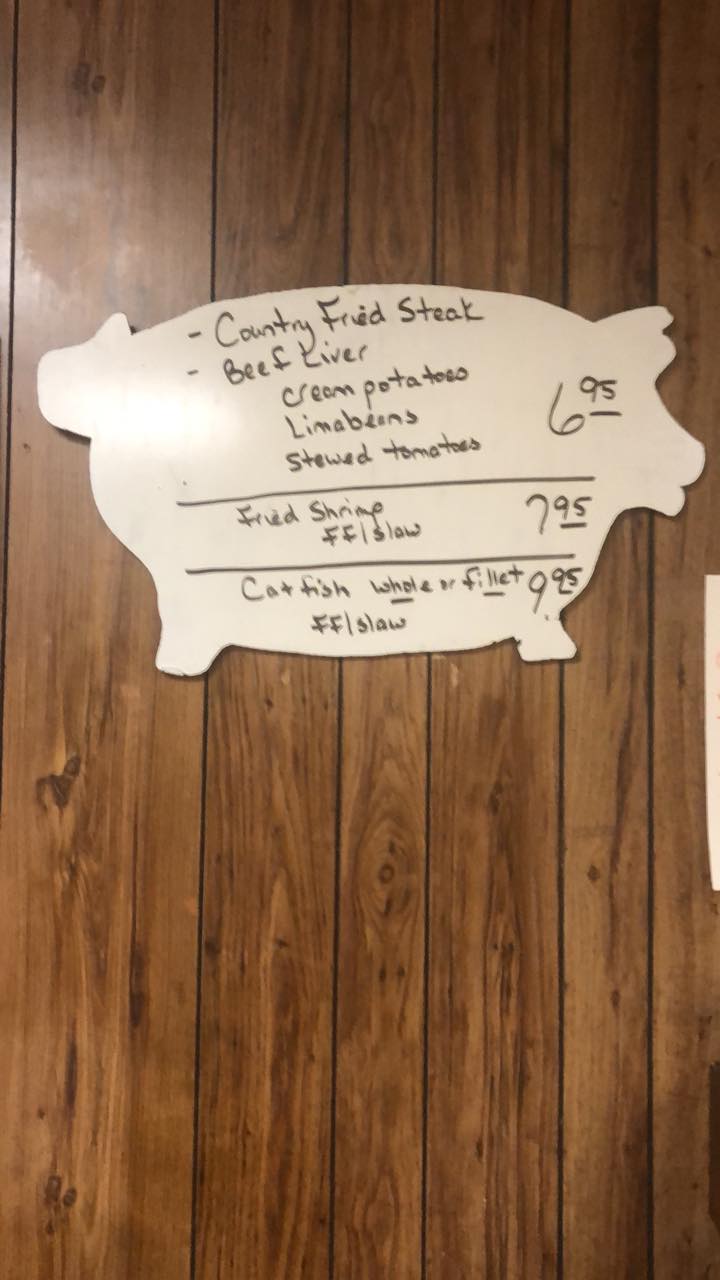 - Country Fried Steak
- Beef Liver
Cream potatoes
Limabeans
Stewed tomatoes
6 95
Fried Shrimp 7 95
FF/slaw
Catfish whole or fillet 9 95
FF/slaw